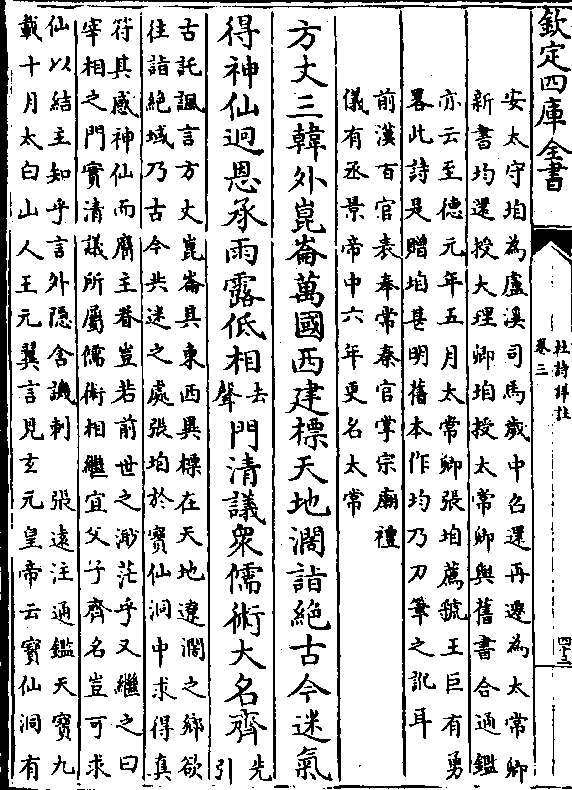 欽定四庫全書
杜詩詳註
卷三
四十三
安太守垍為盧溪司馬歲中召還再遷為太常卿
新書均還授大理卿垍授太常卿與舊書合通鑑
亦云至德元年五月太常卿張垍薦虢王巨有勇
畧此詩是贈垍甚明舊本作均乃刀筆之訛耳
前漢百官表奉常秦官掌宗廟禮
儀有丞景帝中六年更名太常
方丈三韓外崑崙萬國西建標天地濶詣絶古今迷氣
得神仙迥恩承雨露低相去聲門清議衆儒術大名齊先引
古託諷言方丈崑崙具東西異標在天地遼濶之鄉欲
往詣絶域乃古今共迷之處張垍於寳仙洞中求得真
符其感神仙而膺主眷豈若前世之渺茫乎又繼之曰
宰相之門實清議所屬儒術相繼宜父子齊名豈可求
仙以結主知乎言外隠含譏刺 張遠注通鑑天寳九
載十月太白山人王元翼言見玄元皇帝云寳仙洞有